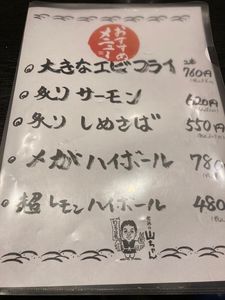 おすすめ
メニュー
大きなエビフライ 2本 760円
炙り サーモン 620円
炙り しめさば 550円
メガハイボール 780
超 レモンハイボール 480
山ちゃん